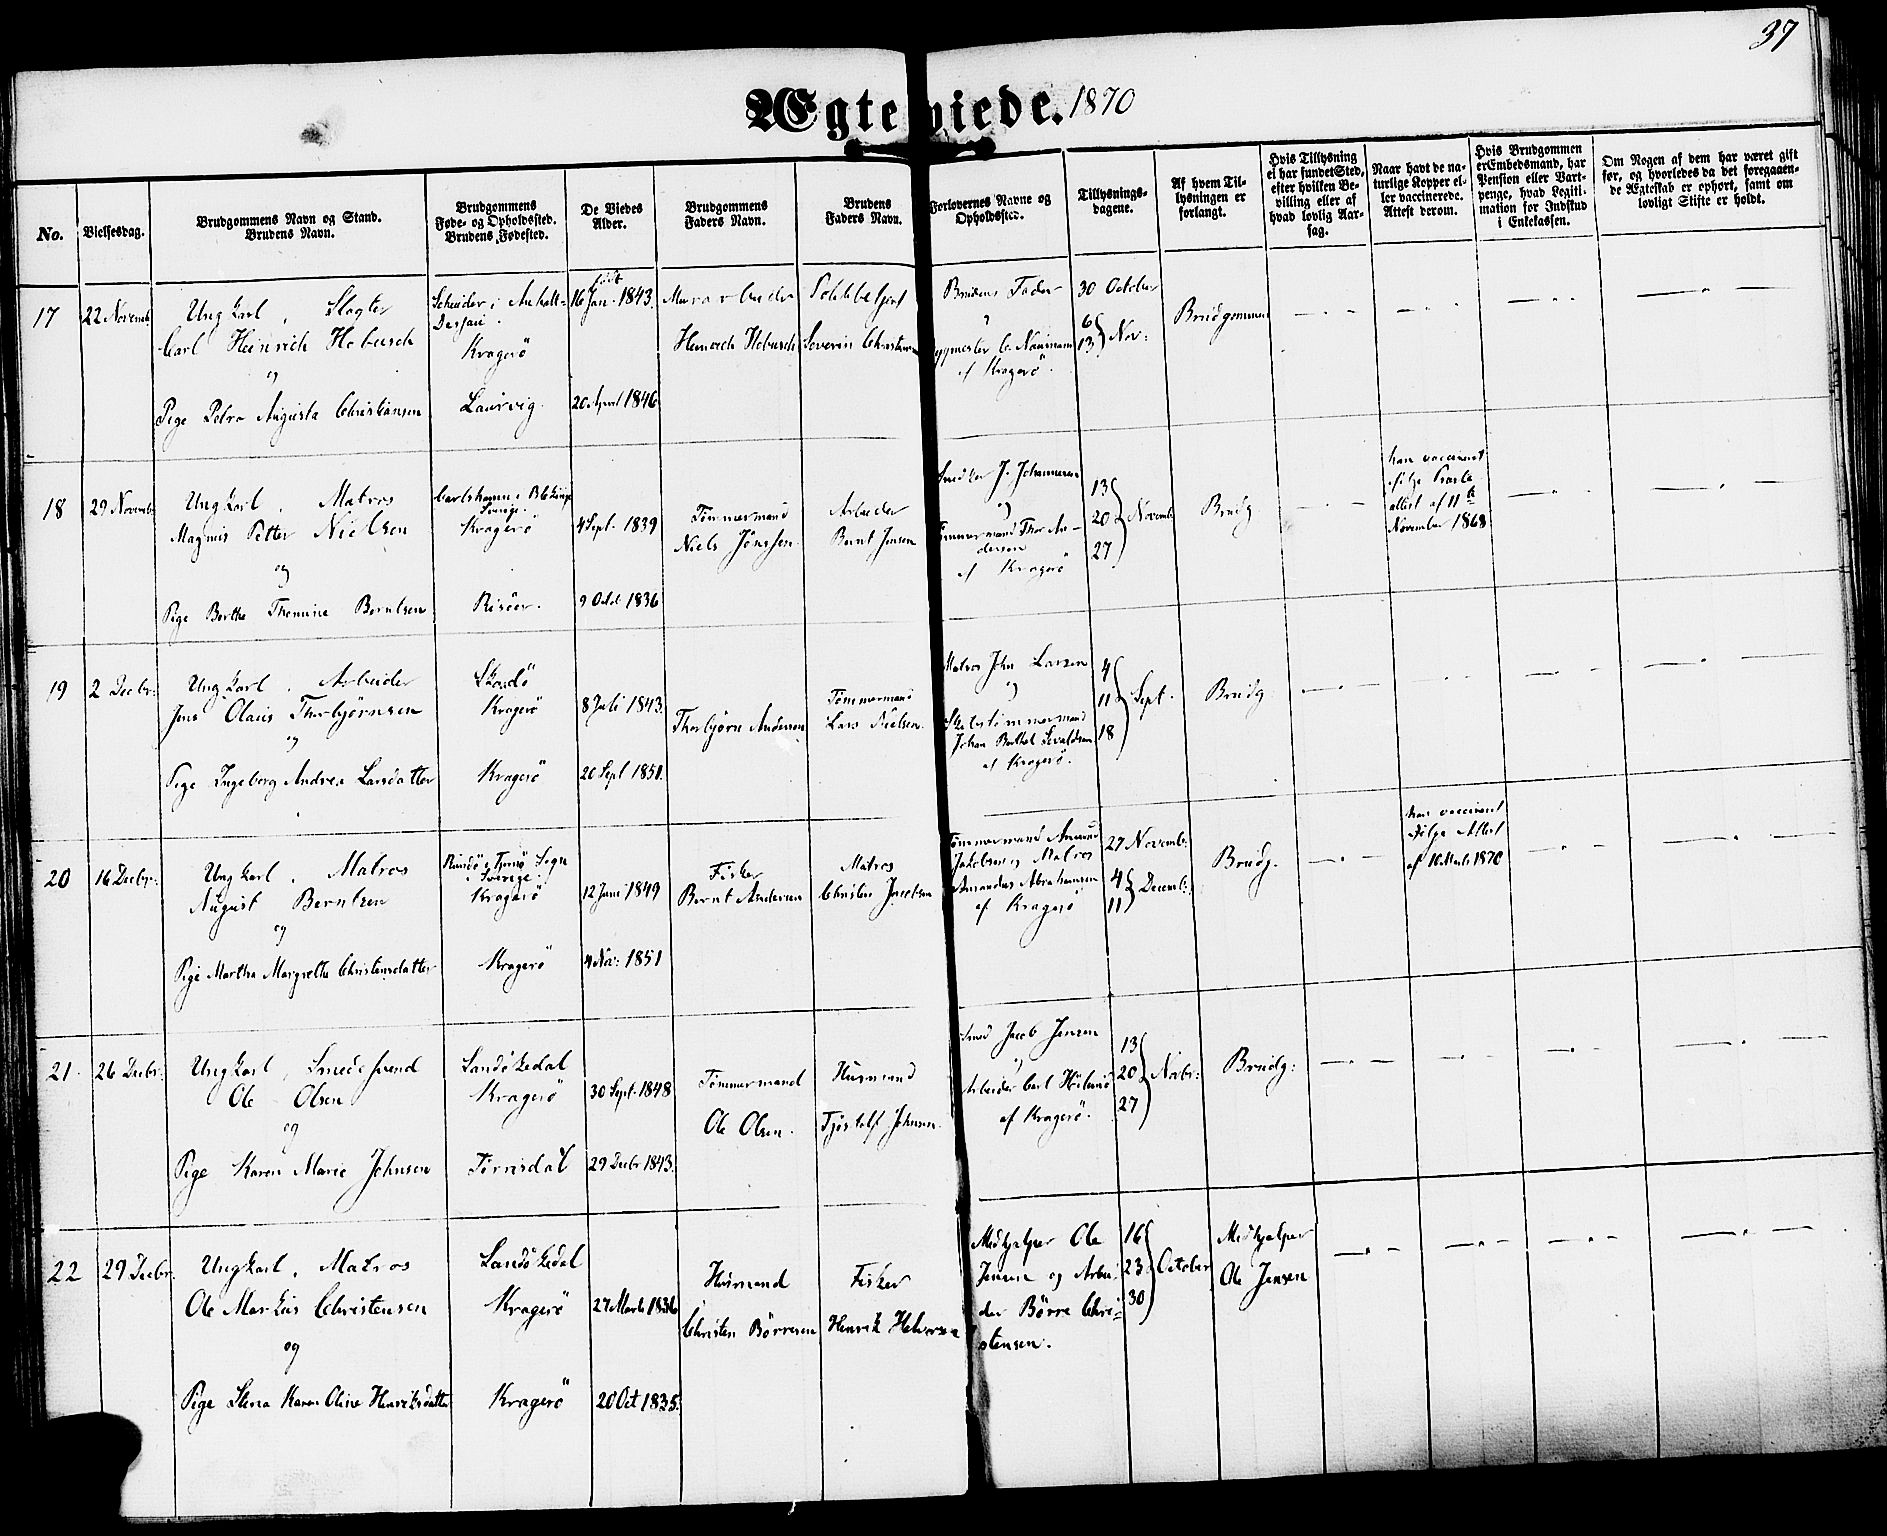 37
Ægteviede. 1870
No.
Vielsesdag.
Brudgommens Navn og Stand.
Brudens Navn.
Brudgommens
Føde- og Opholdssted.
Brudens Fødested.
De Viedes
Alder.
Brudgommens
Faders Navn.
Brudens
Faders Navn.
Forlovernes Navne og
Opholdssted.
Tillysnings-
dagene.
Af hvem Til-
lysningen er
forlangt.
Hvis Tillysning
ei har fundet Sted,
efter hvilken Be-
villing eller af
hvad lovlig Aar-
sag.
Naar havt de na-
turlige Kopper el-
ler vaccinerede.
Attest derom.
Hvis Brudgommen
er Embedsmand, har
Pension eller Vart-
penge, hvad Legiti-
mation for Indskud
i Enkekassen.
Om Nogen af dem har været gift
før, og hvorledes da det foregaaen-
de Ægteskab er ophørt, samt om
lovligt Skifte er holdt.
17
22 Novemb
Ungkarl, Slagter
Carl Heinrich Hobusch
og
Pige Petra Augusta Christiansen
i Anhalt-
Dessau.
Kragerö
Laurvig.
født
16 Jan. 1843.
20 April 1846
Murarbeider
Heinrich Hobusch
Severin Christensen
Brudens Fader
C. Naumann
af Kragerö.
30 October
6
13 } Nov:
Brudgommen
18
29 Novemb
Ungkarl, Matros
Magnus Petter Nielsen
og
Pige Berthe Thomine Berntsen
Carlshamn i Blekinge
Sverige.
Kragerö
Risöer.
4 Sept. 1839
9 Octob 1836
Tömmermand
Niels Jönssen
Arbeider
Bernt Jensen
J. Johannesen
og
Tömmermand Thor An-
dersen
af Kragerö
13
20 } Novemb
27
Brudg.
han vaccineret
ifölge
attest af 11te
November 1868
19
2 Decbr:
Ungkarl, Arbeider
Jens Olaus Thorbjörnsen
og
Pige Ingeborg Andrea Larsdatter
Skaadö
Kragerö
Kragerö
8 Juli 1843.
20 Sept 1851.
Thorbjörn Andersen
Tömmermand
Lars Nielsen
Matros John Larsen
og
Skibstömmermand
Johan Berthel
af Kragerö.
4
11 } Sept.
18
Brudg
20
16 Decbr:
Ungkarl, Matros
August Berntsen
og
Pige Martha Margrethe Christensdatter
Sogn
i Sverige.
Kragerö
Kragerö
12 Juni 1849
4 Nov: 1851
Fisker
Bernt Andersen
Matros
Christen Jacobsen
Tömmermand
Jakobsen og Matros
Amandus Abrahamsen
af Kragerö
27 Novemb:
4
11 } Decemb:
Brudg.
han vaccineret
ifölge Attest
af 10 Marts 1870
21
26 Decbr:
Ungkarl, Smedesvend
Ole Olsen
og
Pige Karen Marie Johnsen
Sandökedal
Kragerö
Törrisdal
30 Sept. 1848
29 Decbr 1843.
Tömmermand
Ole Olsen.
Husmand
Tjöstolf Johnsen.
Smed Jacob Jensen
og
Arbeider Carl
af Kragerö.
13
20 } Novbr:
27
Brudg:
22
29 Decbr.
Ungkarl, Matros
Ole Markus Christensen
og
Pige Stina Karen Oline Henriksdatter
Sandökedal
Kragerö
Kragerö
27 Marts 1836
20 Oct 1835.
Husmand
Christen Börresen
Fisker
Henrik Halvorsen
Medhjelper Ole
Jensen og Arbei-
der Börre Chri-
stensen.
16
23 } October
30
Medhjelper
Ole Jensen